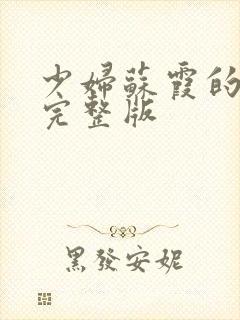 少婦蘇霞的
完整版
黑發安妮